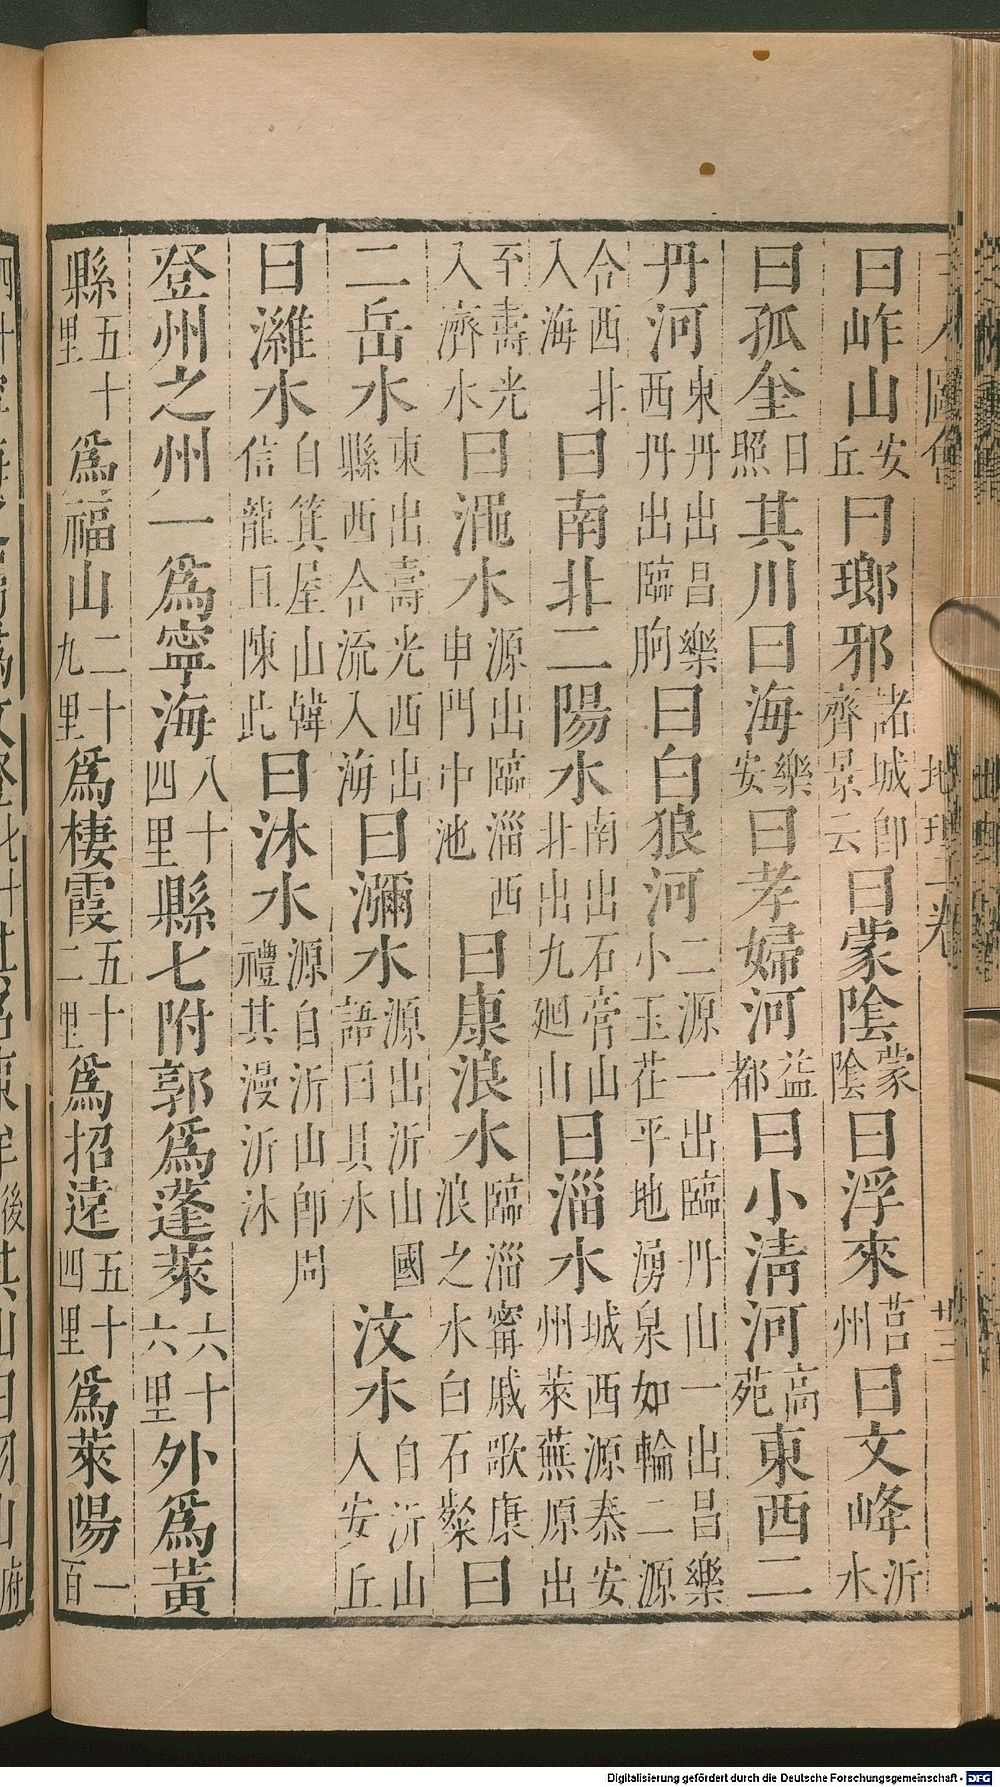 曰岞山安丘曰瑯邪諸城卽齊景云曰蒙陰蒙陰曰浮來莒州曰文峰沂水
曰孤奎日照其川曰海樂安曰孝婦河益都曰小清河高苑東西二
丹河東丹出昌樂西丹出臨朐曰白狼河二源一出臨丹山一出昌樂小玉茬平地湧泉如輪二源
合西北入海曰南北二陽水南出石膏山北出九廻山曰淄水城西源泰安州萊蕪原出
至壽光入濟水曰澠水源出臨淄西申門中池曰康浪水臨淄甯戚歌康浪之水白石粲曰
二岳水東出壽光西出縣西合流入海曰瀰水源出沂山國語曰具水汶水自沂山入安丘
曰濰水自箕屋山韓信龍且陳此曰沭水源自沂山卽周禮其漫沂沭
登州之州一爲寧海八十四里縣七附郭爲蓬萊六十六里外爲黃
縣五十里爲福山二十九里爲棲霞五十二里爲招遠五十四里爲萊陽一百
地理二卷
廿三
Digitalisierung gefördert durch die Deutsche Forschungsgemeinschaft - DFG